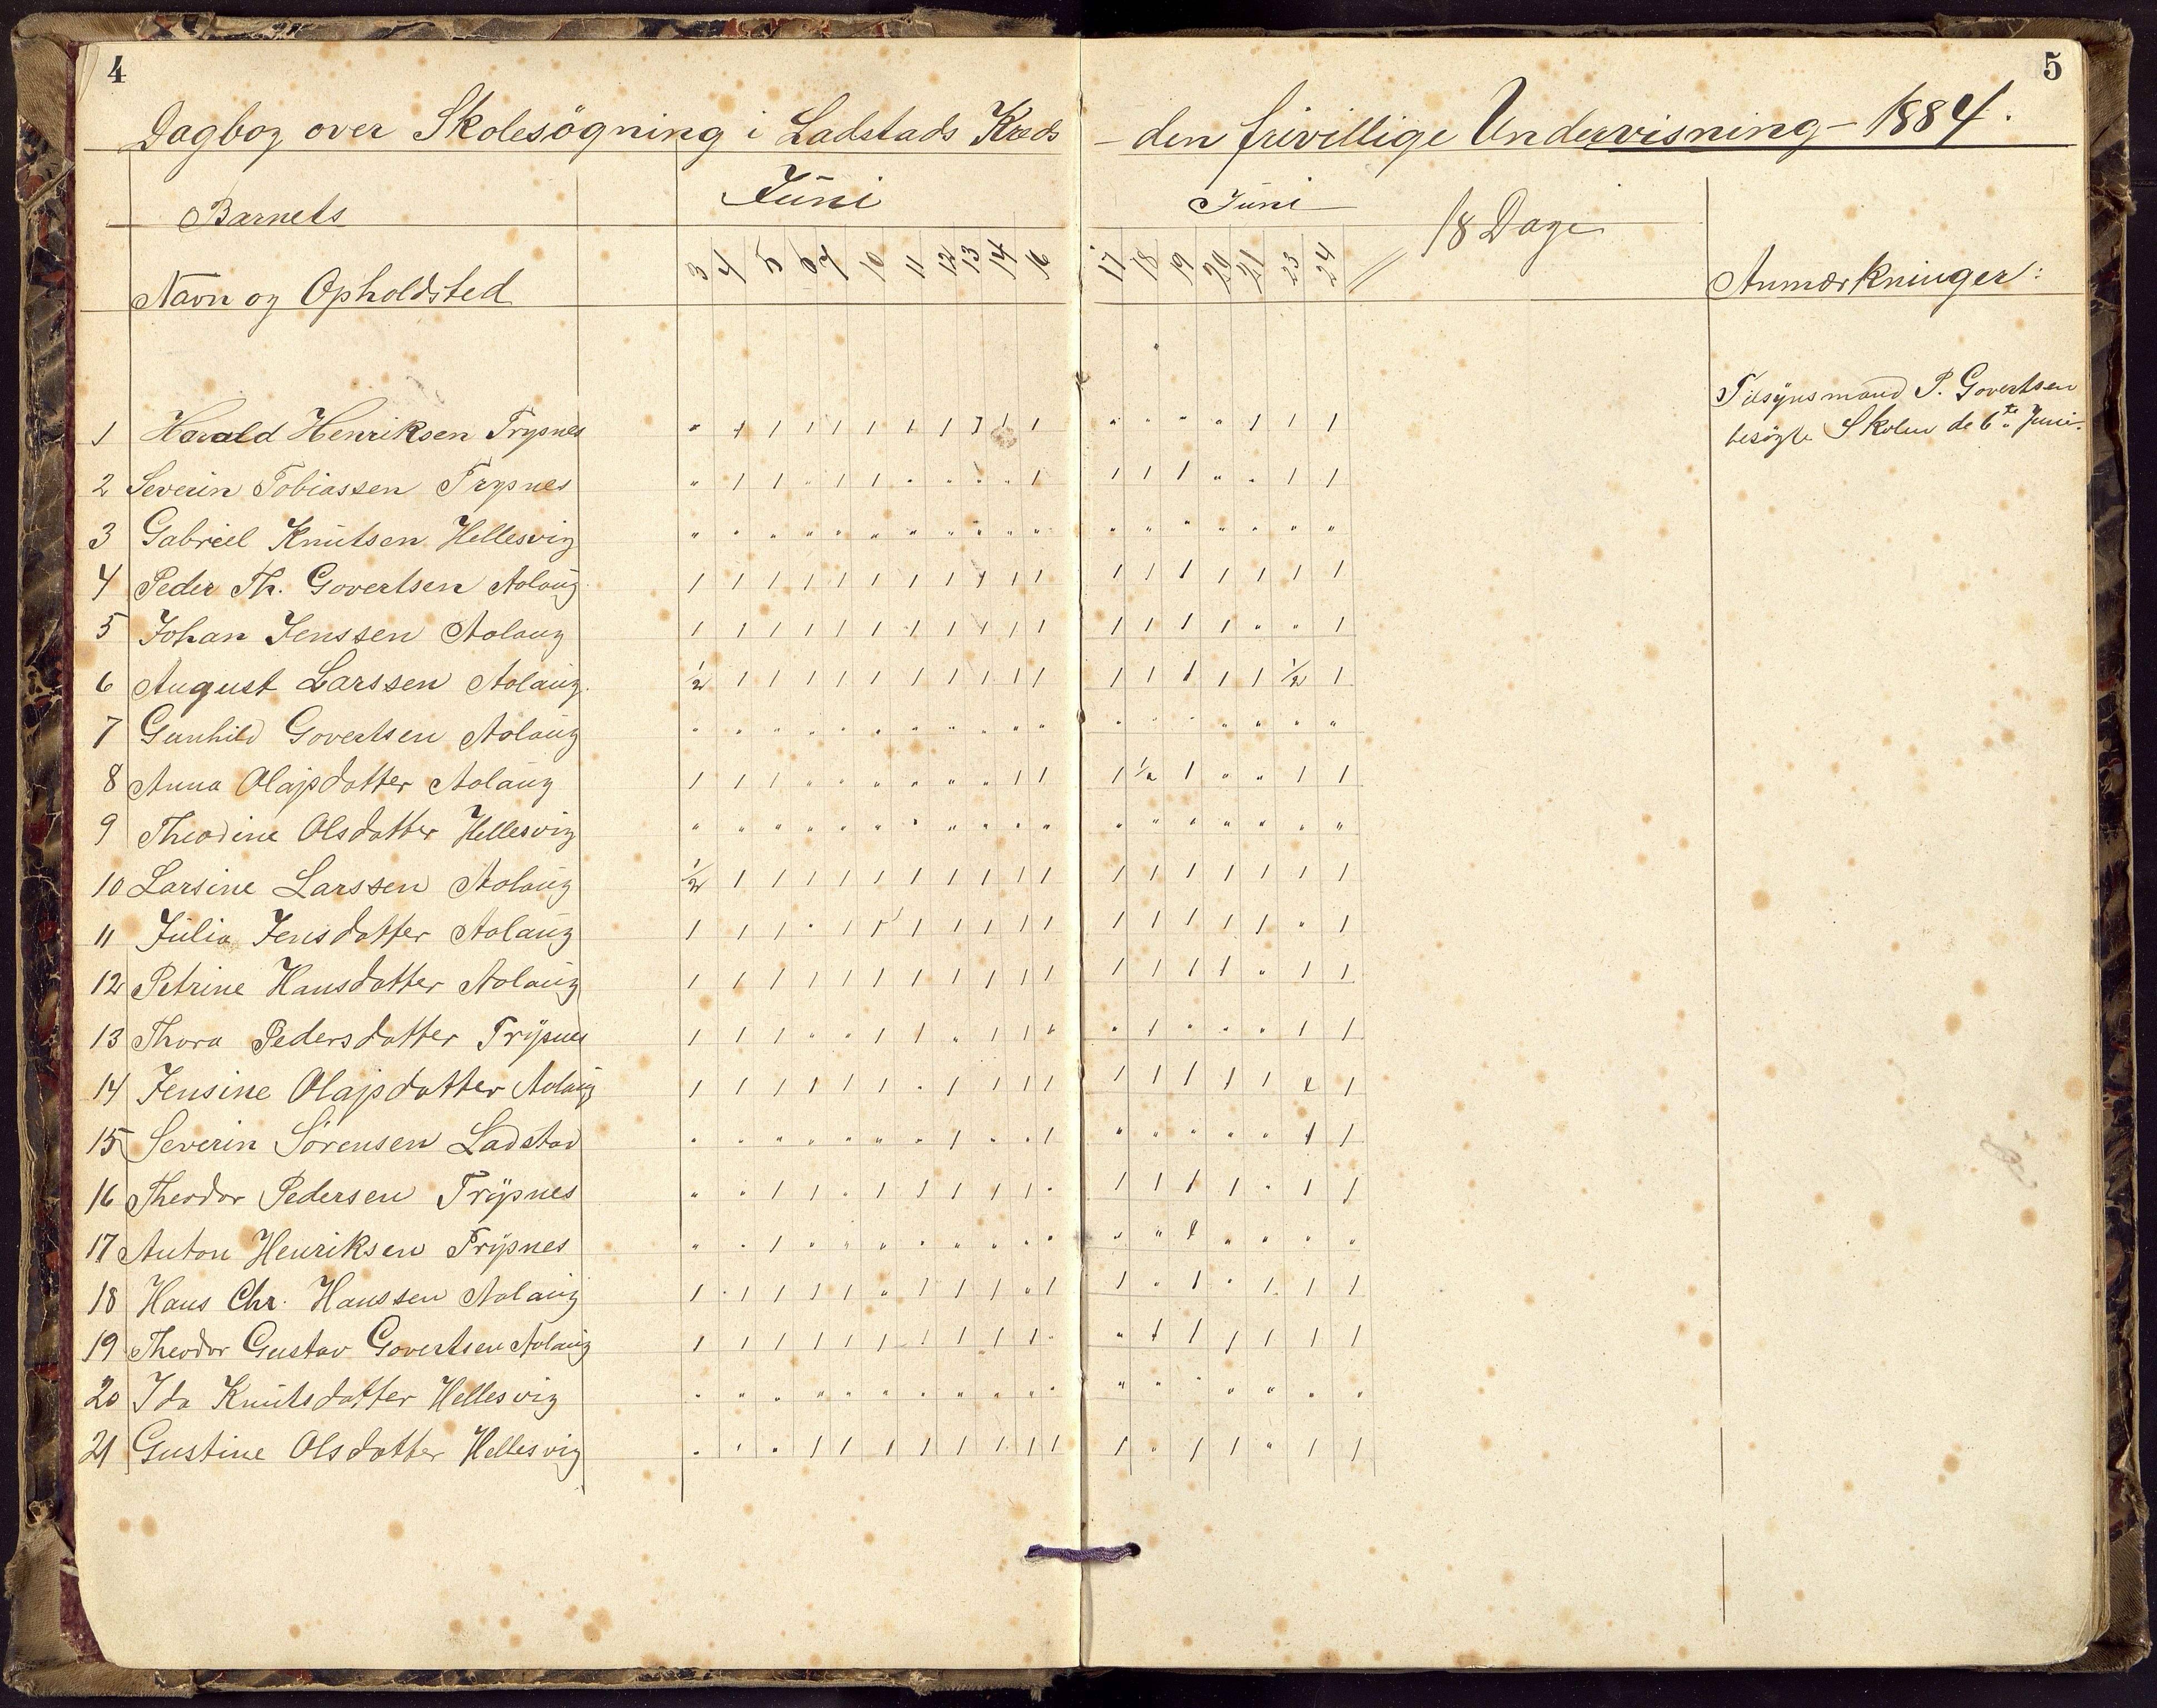 4
5
Dagbog over Skolesögning i Ladstads Kreds – den frivillige Undervisning – 1884.
Barnets
Navn og Opholdsted
Juni
3 4 5 6 7 10 11 12 13 14 16
Juni
17 18 19 20 21 23 24
18 Dage
Anmærkninger:
Tilsynsmand P. Govertsen
besøgte Skolen de 6te Juni.
1 Harald Henriksen Trysnes " 1 1 1 1 1 1 1 1 1 1 " " " " 1 1 1
2 Severin Tobiassen Trysnes " 1 1 " 1 1 " " " " 1 1 1 1 " " 1 1
3 Gabriel Knutsen Hellesvig " " " " " " " " " " " " " " " " " "
4 Peder Th. Govertsen Aolaug 1 1 1 1 1 1 1 1 1 1 1 1 1 1 1 1 1 1
5 Johan Jenssen Aolaug 1 1 1 1 1 1 1 1 1 1 1 1 1 1 1 " " 1
6 August Larssen Aolaug. 1/2 1 1 1 1 1 1 1 1 1 1 1 1 1 1 1 1/2 1
7 Gunhild Govertsen Aolaug " " " " " " " " " " " " " " " " " "
8 Anna Olajsdatter Aolaug 1 1 1 " " " " " " 1 1 1 1/2 1 " " 1 1
9 Theodine Olsdatter Hellesvig " " " " " " " " " " " " " " " " " "
10 Larsine Larssen Aolaug 1/2 1 1 1 1 1 1 1 1 1 1 1 1 1 1 1 1 1
11 Julia Jensdatter Aolaug 1 1 1 " 1 1 1 1 1 1 1 1 1 1 1 1 " 1
12 Petrine Hansdatter Aolaug 1 1 1 1 1 1 1 1 1 1 1 1 1 1 1 " 1 1
13 Thora Pedersdatter Trysnes 1 1 1 " " 1 1 " 1 1 " " 1 " " " 1 1
14 Jensine Olajsdatter Aolaug 1 1 1 1 1 1 " 1 1 1 1 1 1 1 1 1 1 1
15 Severin Sörensen Ladstad " " " " " " " 1 " " 1 " " " " " 1 1
16 Theodor Pedersen Trysnes " " 1 1 " 1 1 1 1 1 " 1 1 1 1 " 1 1
17 Anton Henriksen Trysnes " " 1 " " " " " " " " " " 1 " " " "
18 Hans Chr. Hanssen Aolaug 1 " 1 1 1 " 1 1 1 " 1 1 " 1 " 1 1 1
19 Theodor Gustav Govertsen Aolaug 1 1 1 1 1 1 1 1 1 1 " " 1 1 1 1 1 1
20 Ida Knutsdatter Hellesvig " " " " " " " " " " " " " " " " " "
21 Gustine Olsdatter Hellesvig " " " 1 1 1 1 1 1 1 1 1 " 1 1 " 1 1